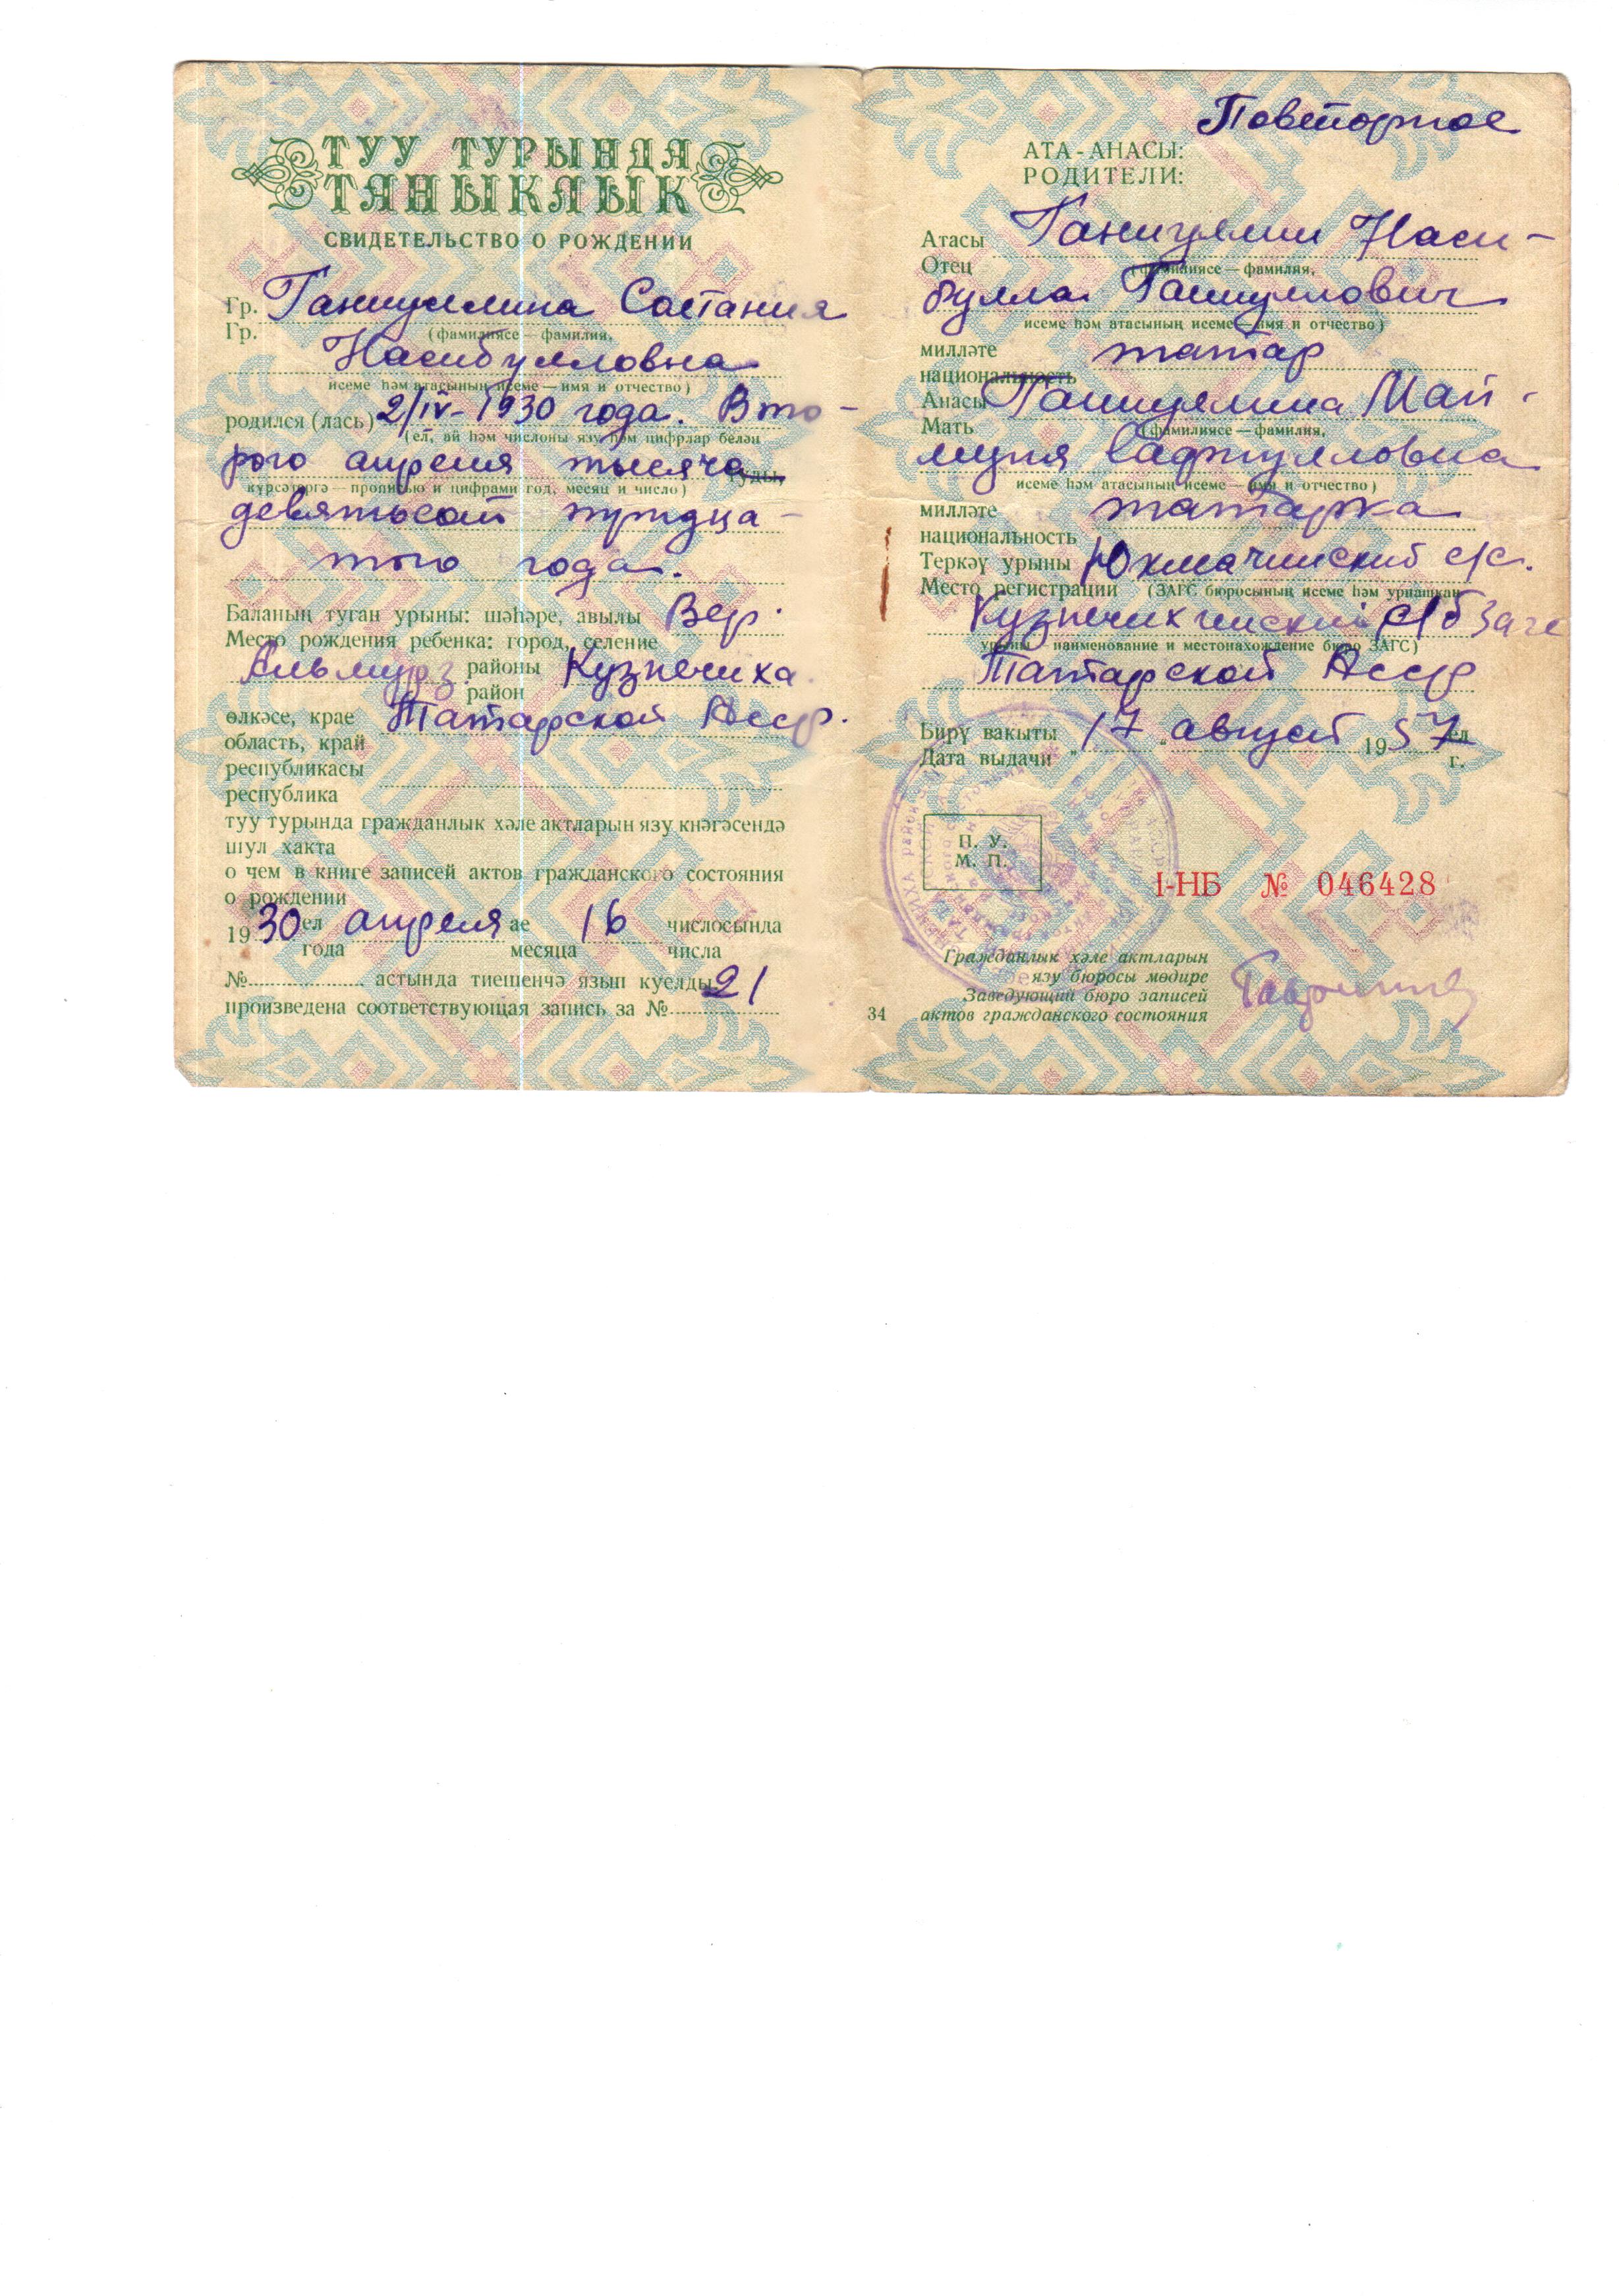 ТУУ ТУРЫНДА
ТАНЫКЛЫК
СВИДЕТЕЛЬСТВО О РОЖДЕНИИ
Гр. Ганиуллина Состания
Гр. (фамилиясе — фамилия,
Насибулловна
исеме һәм атасының исеме — имя и отчество)
родился (лась) 2/IV-1930 года. Вто-
(ел, ай һәм числоны язу һәм цифрлар белән
рого апреля тысяча туды,
күрсәтергә — прописью и цифрами год, месяц и число)
девятьсот тридца-
того года.
Баланың туган урыны: шәһәре, авылы Вер.
Место рождения ребенка: город, селение
Альмурз районы Кузнечиха
район
өлкәсе, крае Татарской Асср.
область, край
республикасы
республика
туу турында гражданлык хәле актларын язу кнәгәсендә
шул хакта
о чем в книге записей актов гражданского состояния
о рождении
1930 ел апреля ае 16 числосында
года месяца числа
№ астында тиешенчә язып куелды 21
произведена соответствующая запись за №
Повторное
АТА-АНАСЫ:
РОДИТЕЛИ:
Атасы Ганиуллин Наси-
Отец (фамилиясе — фамилия,
булла Ганиуллович
исеме һәм атасының исеме — имя и отчество)
милләте татар
национальность
Анасы Ганиуллина Май-
Мать (фамилиясе — фамилия,
муня
исеме һәм атасының исеме — имя и отчество)
милләте татарка
национальность
Теркәү урыны Юхмачинский с/с.
Место регистрации (ЗАГС бюросының исеме һәм урнашкан
Кузнечихинский р/б Загс
урыны — наименование и местонахождение бюро ЗАГС)
Татарской Асср
Бирү вакыты 17 август 1957 ел
Дата выдачи " " г.
П. У.
М. П.
I-НБ № 046428
Гражданлык хәле актларын
язу бюросы мөдире
Заведующий бюро записей
34 актов гражданского состояния